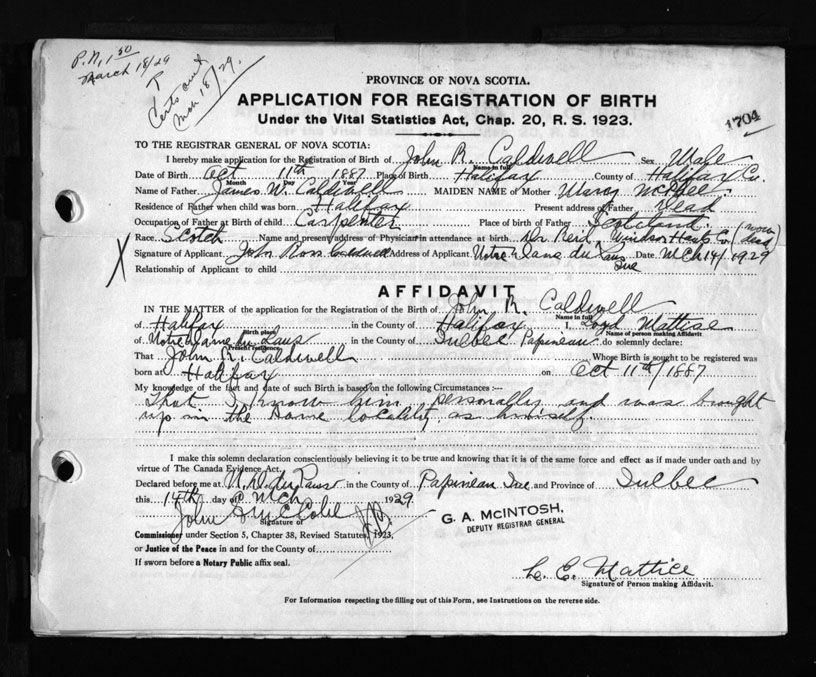 P.N. 1 50
March 18/29
Certs out
Mch 18/29.
PROVINCE OF NOVA SCOTIA.
APPLICATION FOR REGISTRATION OF BIRTH
Under the Vital Statistics Act, Chap. 20, R. S. 1923.
1704
TO THE REGISTRAR GENERAL OF NOVA SCOTIA:
I hereby make application for the Registration of Birth of John R. Caldwell Sex Male
Name in full
Date of Birth Oct 11th 1887 Place of Birth Halifax County of Halifax Co.
Month Day Year
Name of Father James W. Caldwell MAIDEN NAME of Mother Mary McPhee
Residence of Father when child was born Halifax Present address of Father Dead
Occupation of Father at Birth of child Carpenter Place of birth of Father Scotland.
Race Scotch Name and present address of Physician in attendance at birth Dr Reid Windsor Hants Co (now dead)
Signature of Applicant John Ross Caldwell Address of Applicant Notre Dame du Laus Que Date Mch 14/1929
Relationship of Applicant to child
AFFIDAVIT
IN THE MATTER of the application for the Registration of the Birth of John R. Caldwell
Name in full
of Halifax in the County of Halifax, I, Loyd Mattise
Birth place Name of person making Affidavit.
of Notre Dame du Laus in the County of Quebec Papineau do solemnly declare:
Present residence
That John R. Caldwell Whose Birth is sought to be registered was
born at Halifax on Oct 11th/1887
My knowledge of the fact and date of such Birth is based on the following Circumstances :—
That I know him personally and was brought
up in the same locality as himself.
I make this solemn declaration conscientiously believing it to be true and knowing that it is of the same force and effect as if made under oath and by
virtue of The Canada Evidence Act.
Declared before me at N. D. du Laus in the County of Papineau Que and Province of Quebec
this 14th day of Mch 1929
John
Signature of
Commissioner under Section 5, Chapter 38, Revised Statutes, 1923,
or Justice of the Peace in and for the County of
If sworn before a Notary Public affix seal.
G. A. MCINTOSH,
DEPUTY REGISTRAR GENERAL
L. E. Mattice
Signature of Person making Affidavit.
For Information respecting the filling out of this Form, see Instructions on the reverse side.